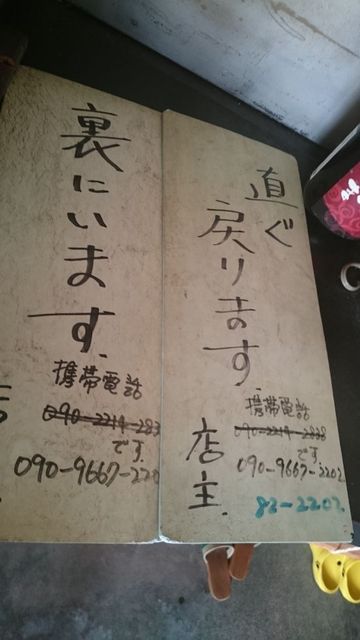 直ぐ
戻ります.
店主.
携帯電話
090-2214-2838
です.
090-9667-2202
82-2202.
裏にいます.
携帯電話
090-2214-283
です.
090-9667-220